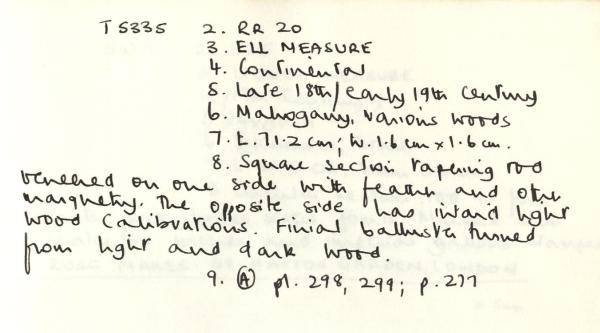 T5335 2. RR 20
3. ELL MEASURE
4. Continental
5. Late 18th/early 19th century
6. Mahogany, various woods
7. L. 71.2 cm; W. 1.6 cm x 1.6 cm.
8. Square section tapering rod
veneered on one side with feather and other
marquetry. The opposite side has inlaid light
wood calibrations. Finial balluster turned
from light and dark wood.
9. (A) pl. 298, 299; p. 277